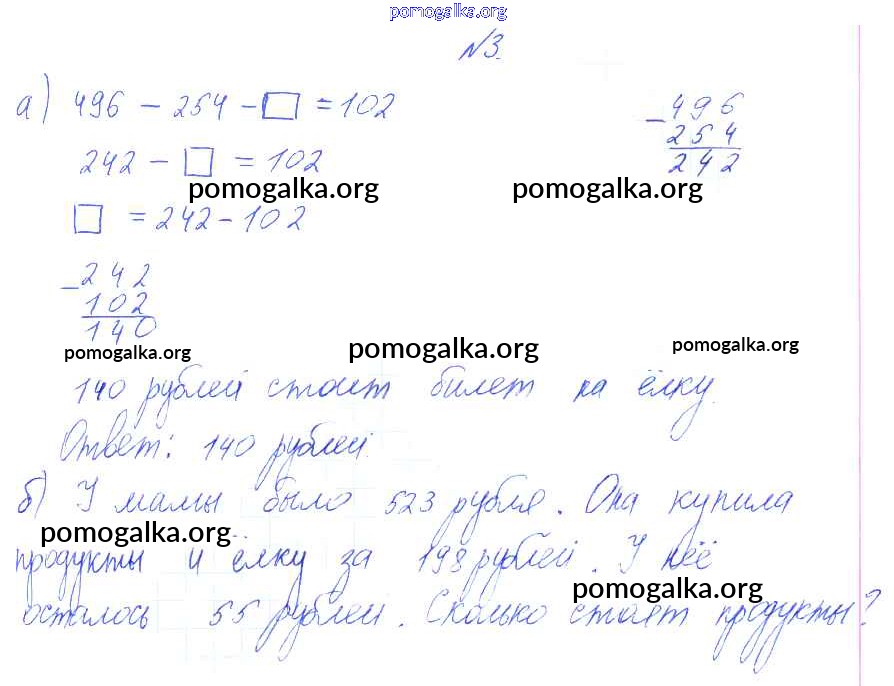 pomogalka.org
№3.
а) 496 − 254 − □ = 102
− 496
254
242
242 − □ = 102
pomogalka.org pomogalka.org
□ = 242 − 102
− 242
102
140
pomogalka.org pomogalka.org pomogalka.org
140 рублей стоит билет на ёлку.
Ответ: 140 рублей.
б) У мамы было 523 рубля. Она купила
pomogalka.org
продукты и ёлку за 198 рублей. У неё
pomogalka.org
осталось 55 рублей. Сколько стоят продукты?